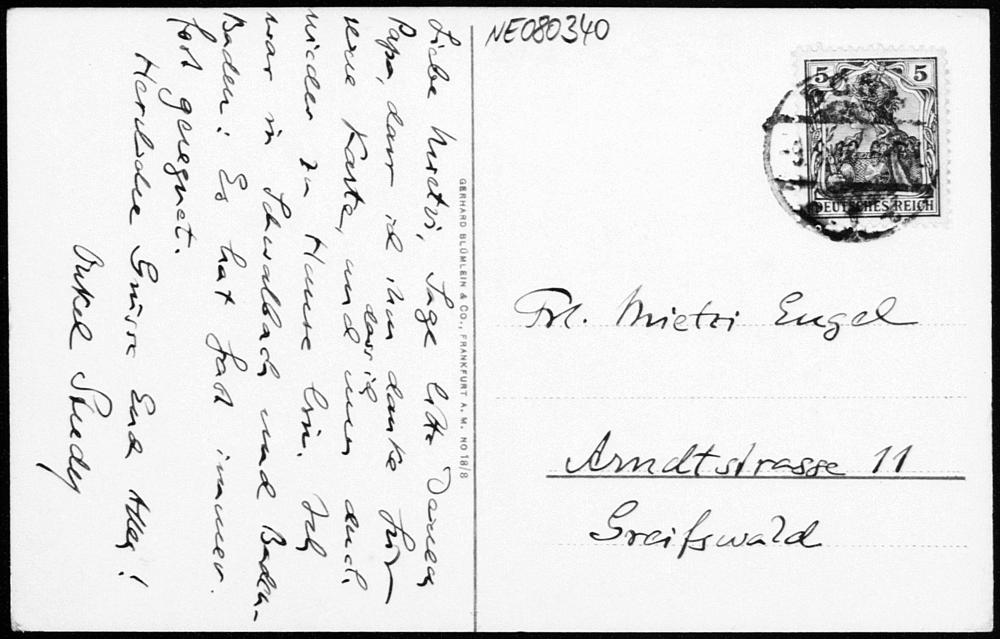 NE080340
5 5
DEUTSCHES REICH
Liebe Mietzi, Sage bitte Deinem
Papa, dass ich ihm danke für
seine Karte, und nun auch
dass ich
wieder zu Hause bin. Ich
war in Schwalbach und Baden-
Baden! Es hat fast immer
fort geregnet.
Herzliche Grüsse Euch Allen!
Onkel
GERHARD BLÜMLEIN & CO., FRANKFURT A. M. NO 18/8
Frl. Mietzi Engel
Arndtstrasse 11
Greifswald